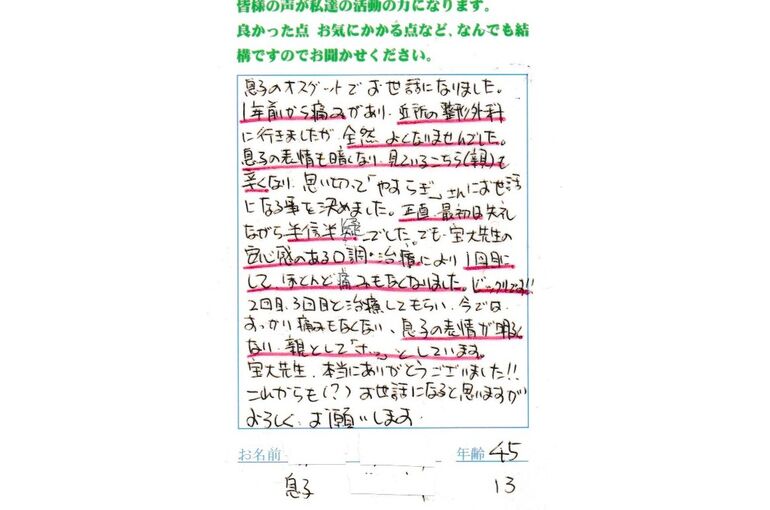 皆様の声が私達の活動の力になります。
良かった点 お気にかかる点など、なんでも結
構ですのでお聞かせください。
息子のオスグットでお世話になりました。
1年前から痛みがあり、近所の整形外科
に行きましたが、全然よくなりませんでした。
息子の表情も暗くなり、見ているこちら(親)も
辛くなり、思い切って「やすらぎ」さんにお世話
になる事を決めました。正直、最初は失礼
ながら半信半疑でした。でも、宝大先生の
安心感のある口調・治療により、1回目に
して、ほとんど痛みもなくなりました。ビックリです!!
2回目、3回目と治療してもらい、今では、
すっかり痛みもなくない、息子の表情が明るく
なり、親として「ホッ」としています。
宝大先生、本当にありがとうございました!!
これからも(?)お世話になると思いますが
よろしくお願いします。
お名前 年齢 45
息子 13